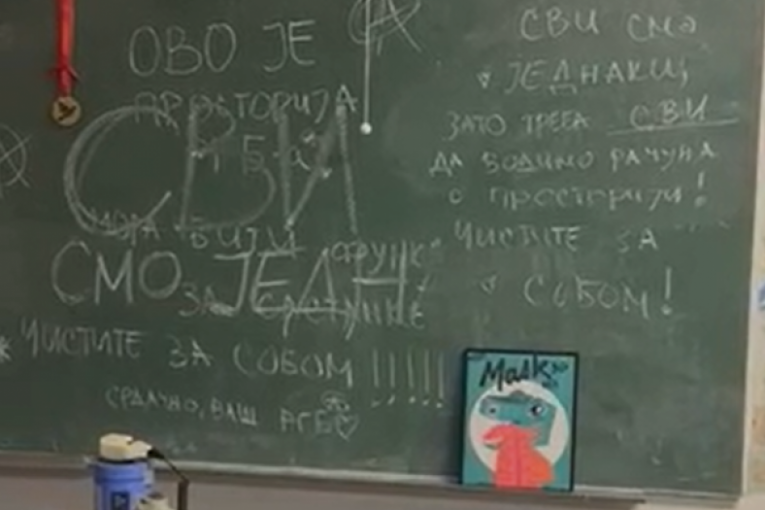 ОВО ЈЕ
ПРОСТОРИЈА
СВИ
СМО ЈЕДН
ЗА
ЧИСТИТЕ ЗА СОБОМ !!!!!
СРДАЧНО, ВАШ
СВИ СМО
ЈЕДНАКИ,
ЗАТО ТРЕБА СВИ
ДА ВОДИМО РАЧУНА
О ПРОСТОРИЈИ!
ЧИСТИТЕ ЗА
СОБОМ!